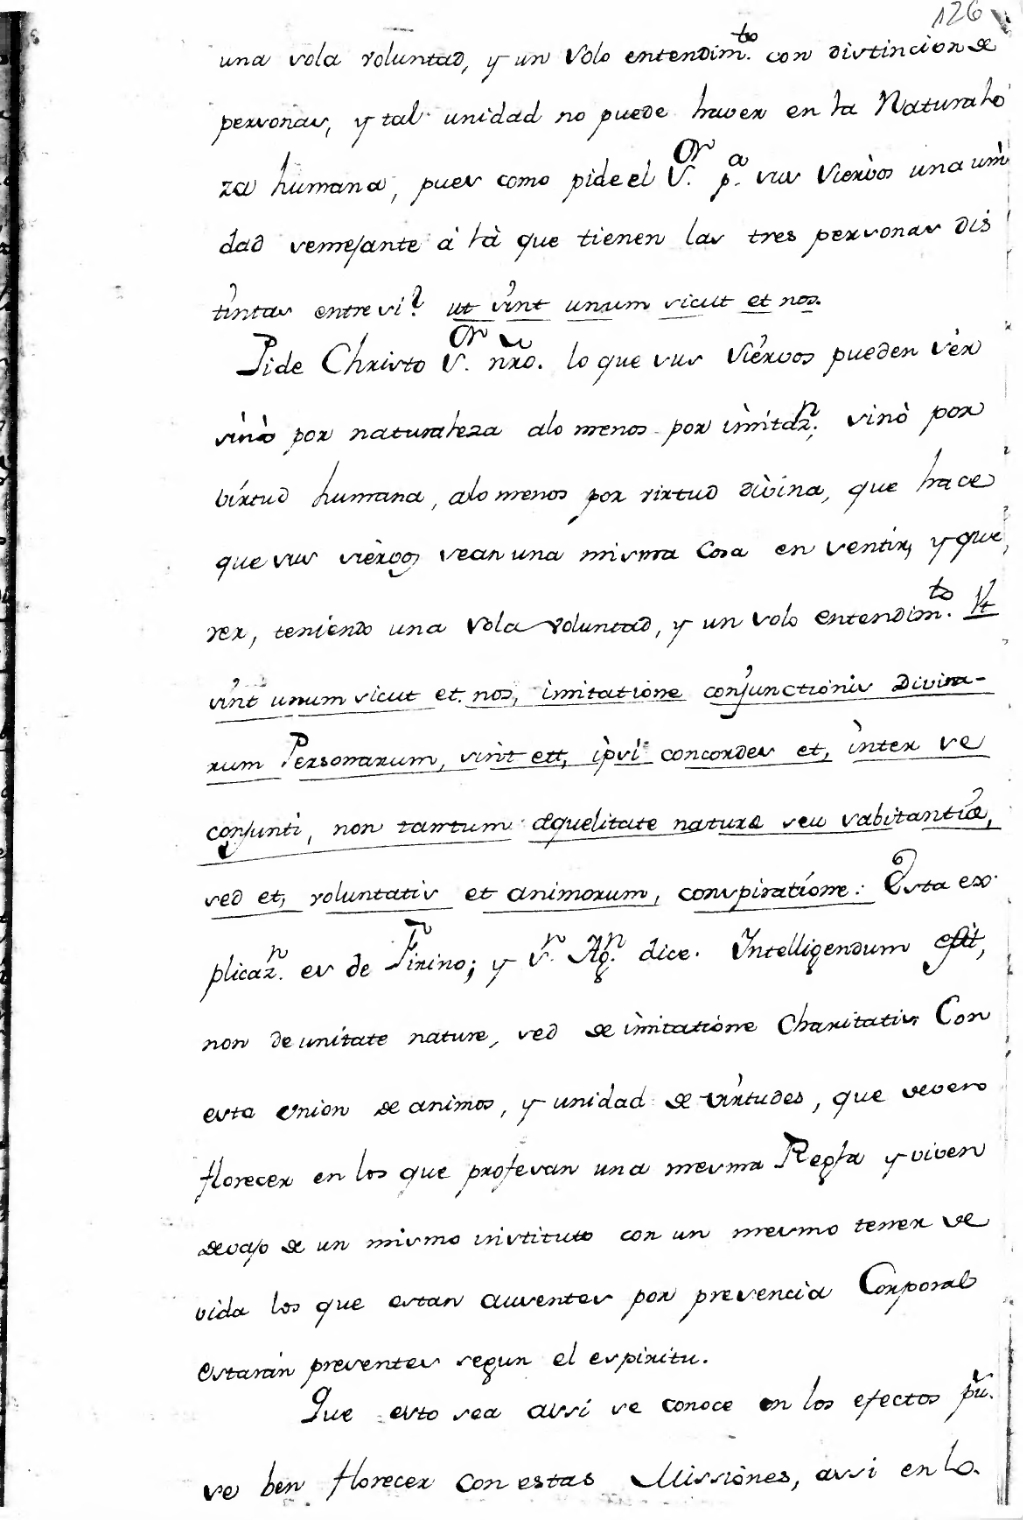 126
una sola voluntad, y un solo entendim.to con distincion de
personas, y tal unidad no puede haver en la Naturale
za humana, pues como pide el S.or p.a sus Siervos una uni
dad semejante a la que tienen las tres personas dis
tintas entre si? ut sint unum sicut et nos.
Pide Christo S.or nro. lo que sus Siervos pueden ser
sinò por naturaleza alo menos por imitaz.n; sinò por
virtud humana, alo menos por virtud divina, que hace
que sus siervos sean una misma Cosa en sentir, y que
rer, teniendo una sola voluntad, y un solo entendim.to Vt
sint unum sicut et nos, imitatione conjunctionis Divina-
rum Personarum, sint ett, ipsi concordes et, inter se
conjunti, non tantum æquelitate naturæ seu sabstantiæ,
sed et, voluntatis et animorum, conspiratione: Esta ex
plicaz.n es de Tirino; y S.n Ag.n dice. Intelligendum est,
non de unitate nature, sed de imitatione Charitatis, Con
esta Union de animos, y unidad de virtudes, que deven
florecer en los que profesan una mesma Regla y viven
devajo de un mismo instituto con un mesmo tenor de
vida los que estan ausentes por presencia Corporal
estaràn presentes segun el espiritu.
Que esto sea assi se conoce en los efectos q.e
se ben florecer con estas Missiones, assi en lo